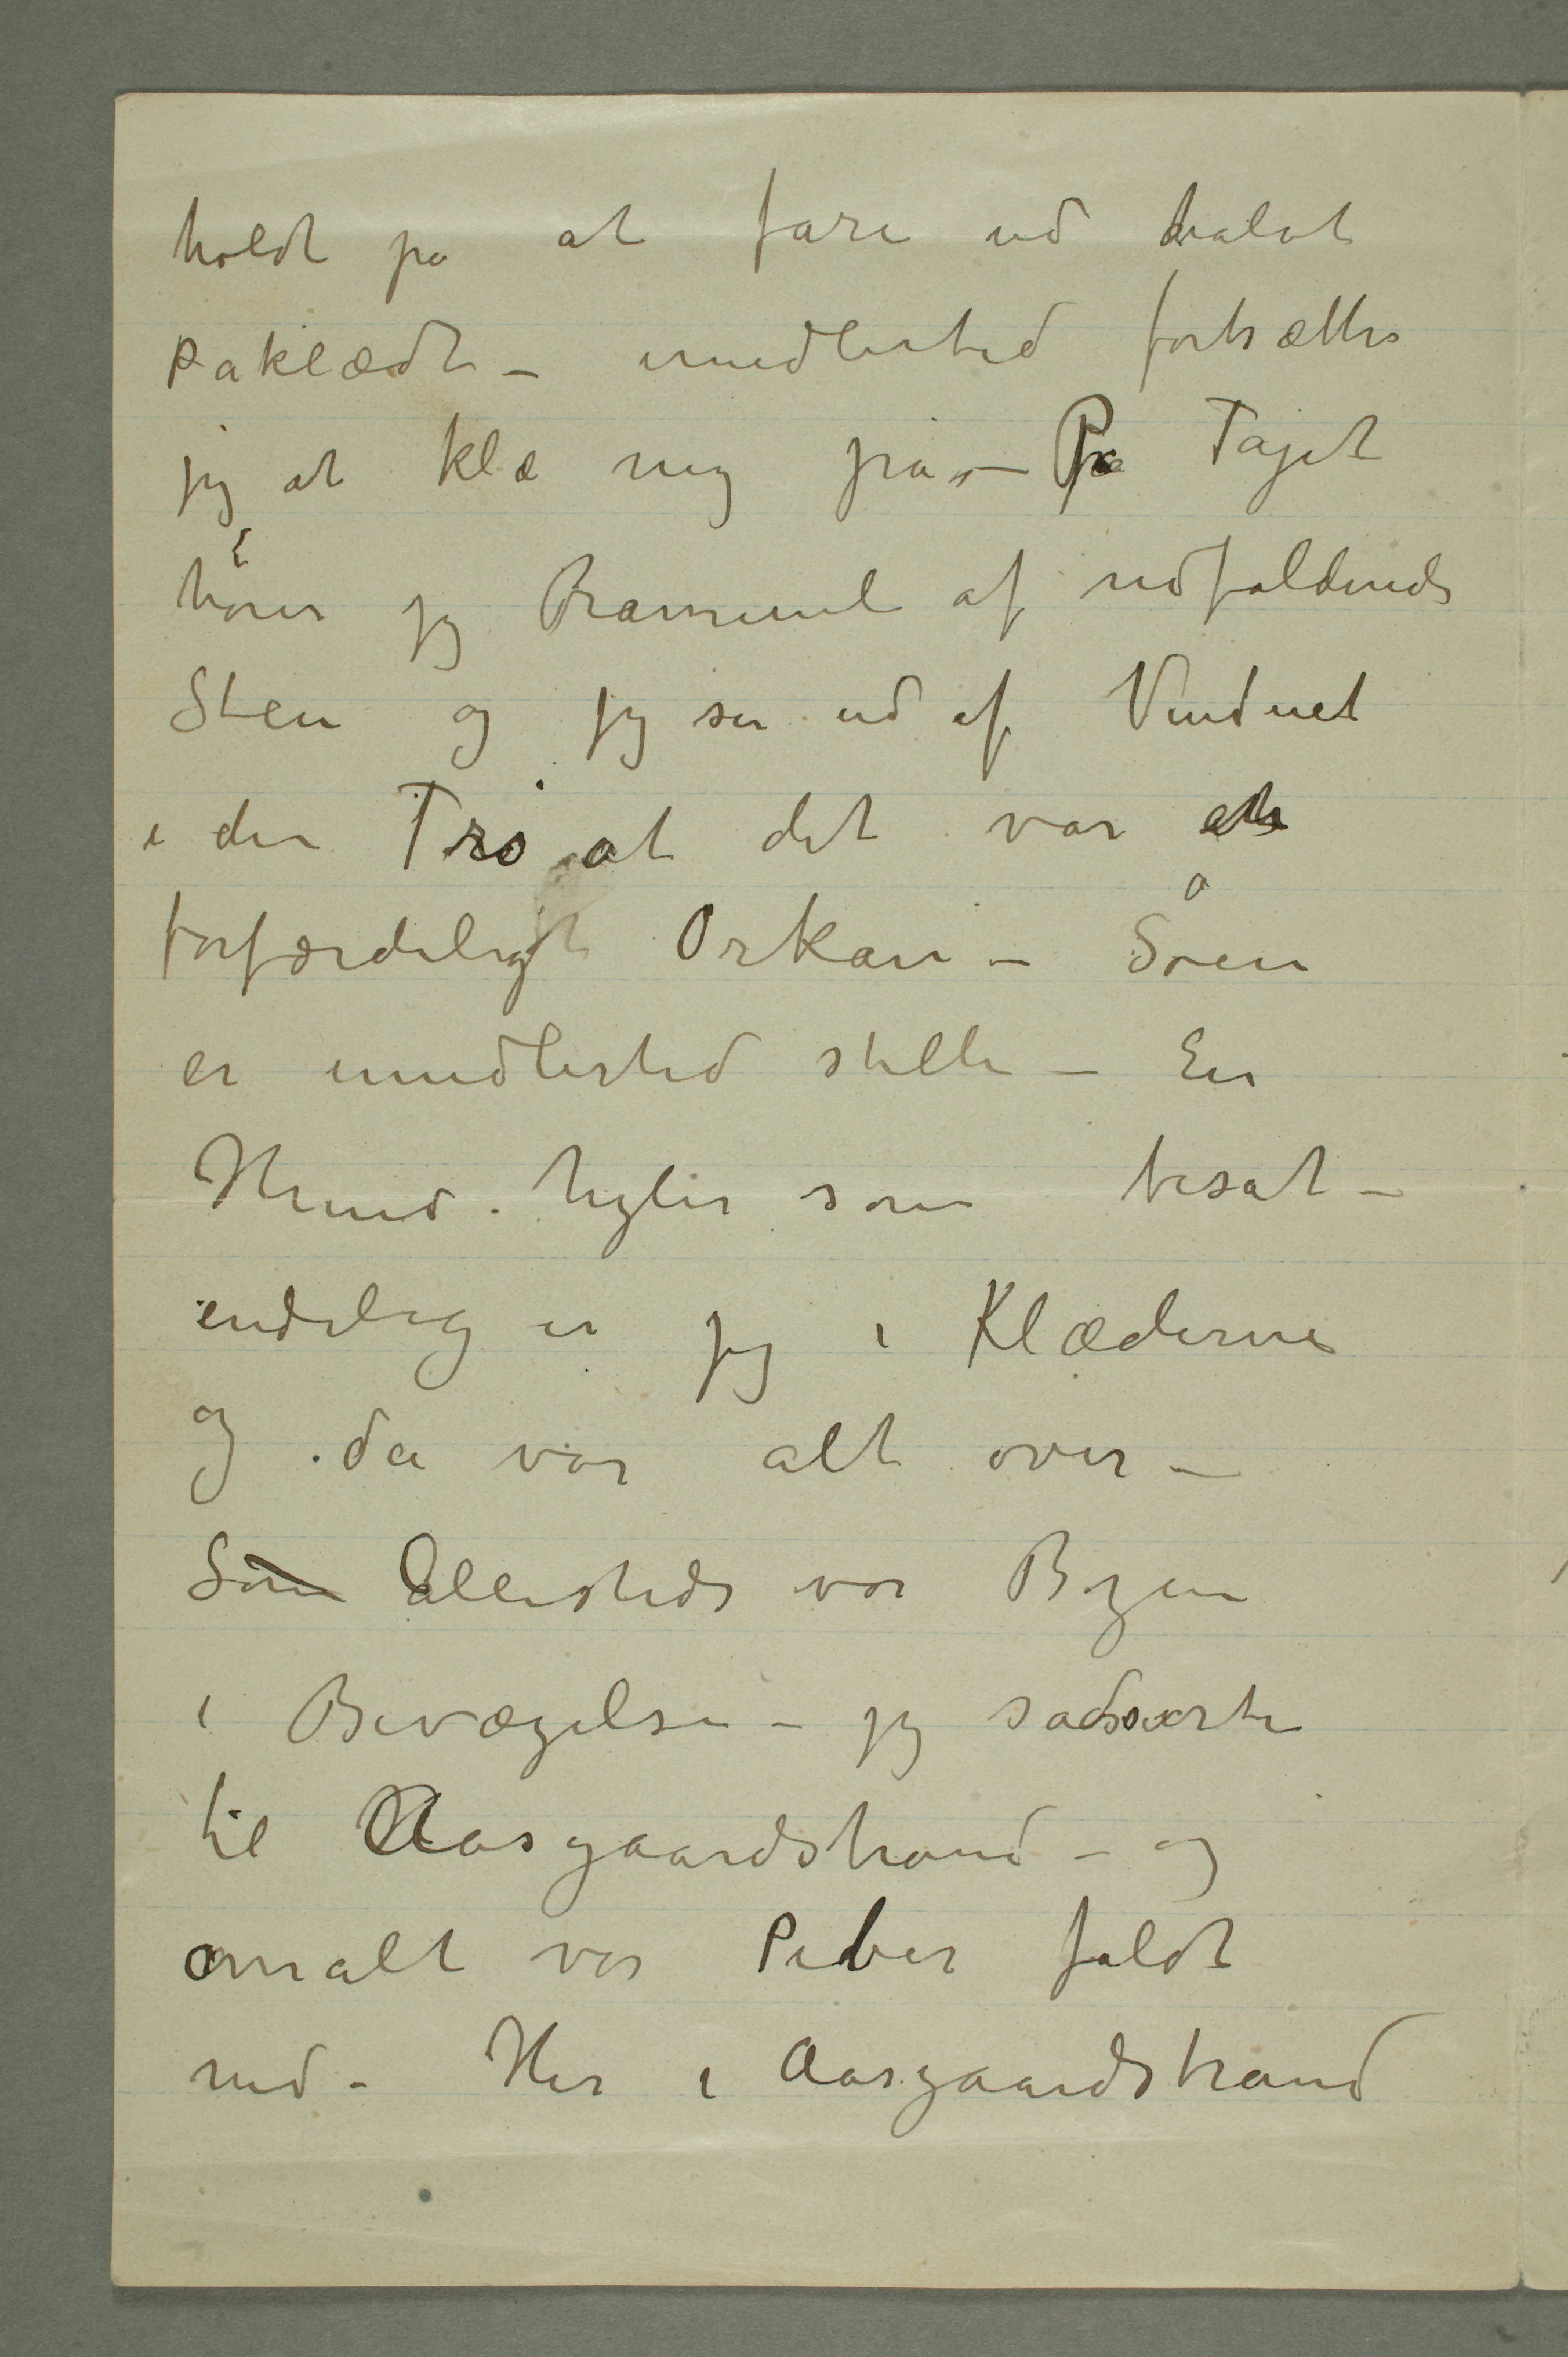 holdt på at fare ud halvt
påklædt – imidlertid fortsætter
jeg at klæ mig på – På Taget
hører jeg Brammel af nedfaldende
Sten og jeg ser ud af Vinduet
i den Tro at det var en
forfærdelig Orkan – Søen
er imidlertid stille – En
Hund hyler som besat –
endelig er jeg i Klæderne
og da var alt over –
Som Allesteds var Byen
i Bevægelse – jeg
til Aasgaardstrand – og
omalt var Piber faldt
ned – Her i Aasgaardstrand